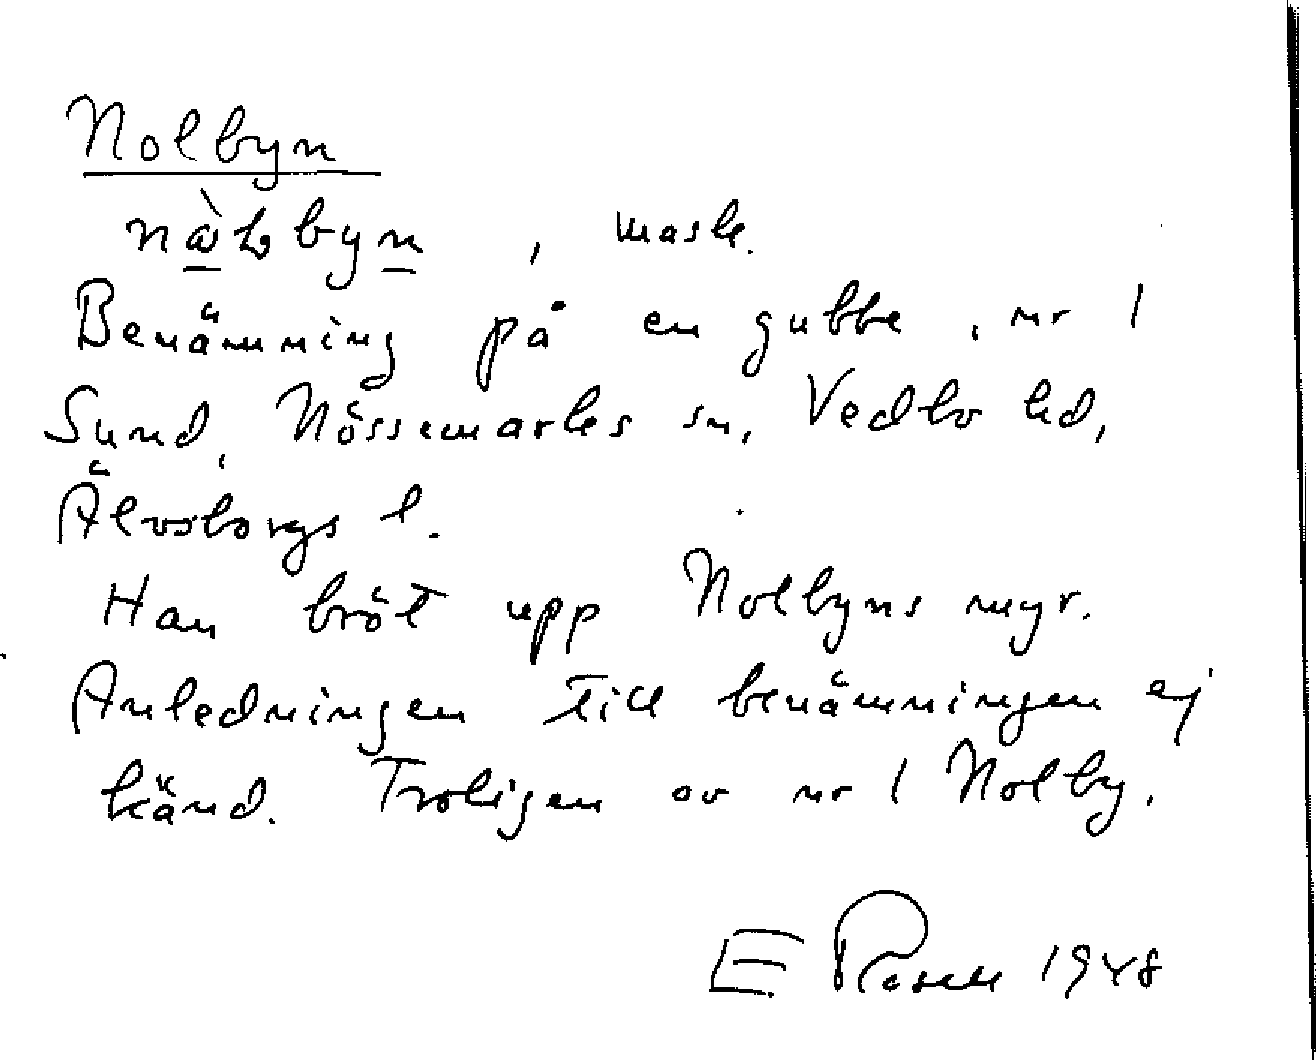 Nolbyn
, mask.
Benämning på en gubbe, nr 1
Sund, Nössemarks sn, Vedbo hd,
Älvsborgs l.
Han bröt upp Nolbyns myr.
Anledningen till benämningen ej
känd. Troligen av nr 1 Nolby.
E Rosell 1948